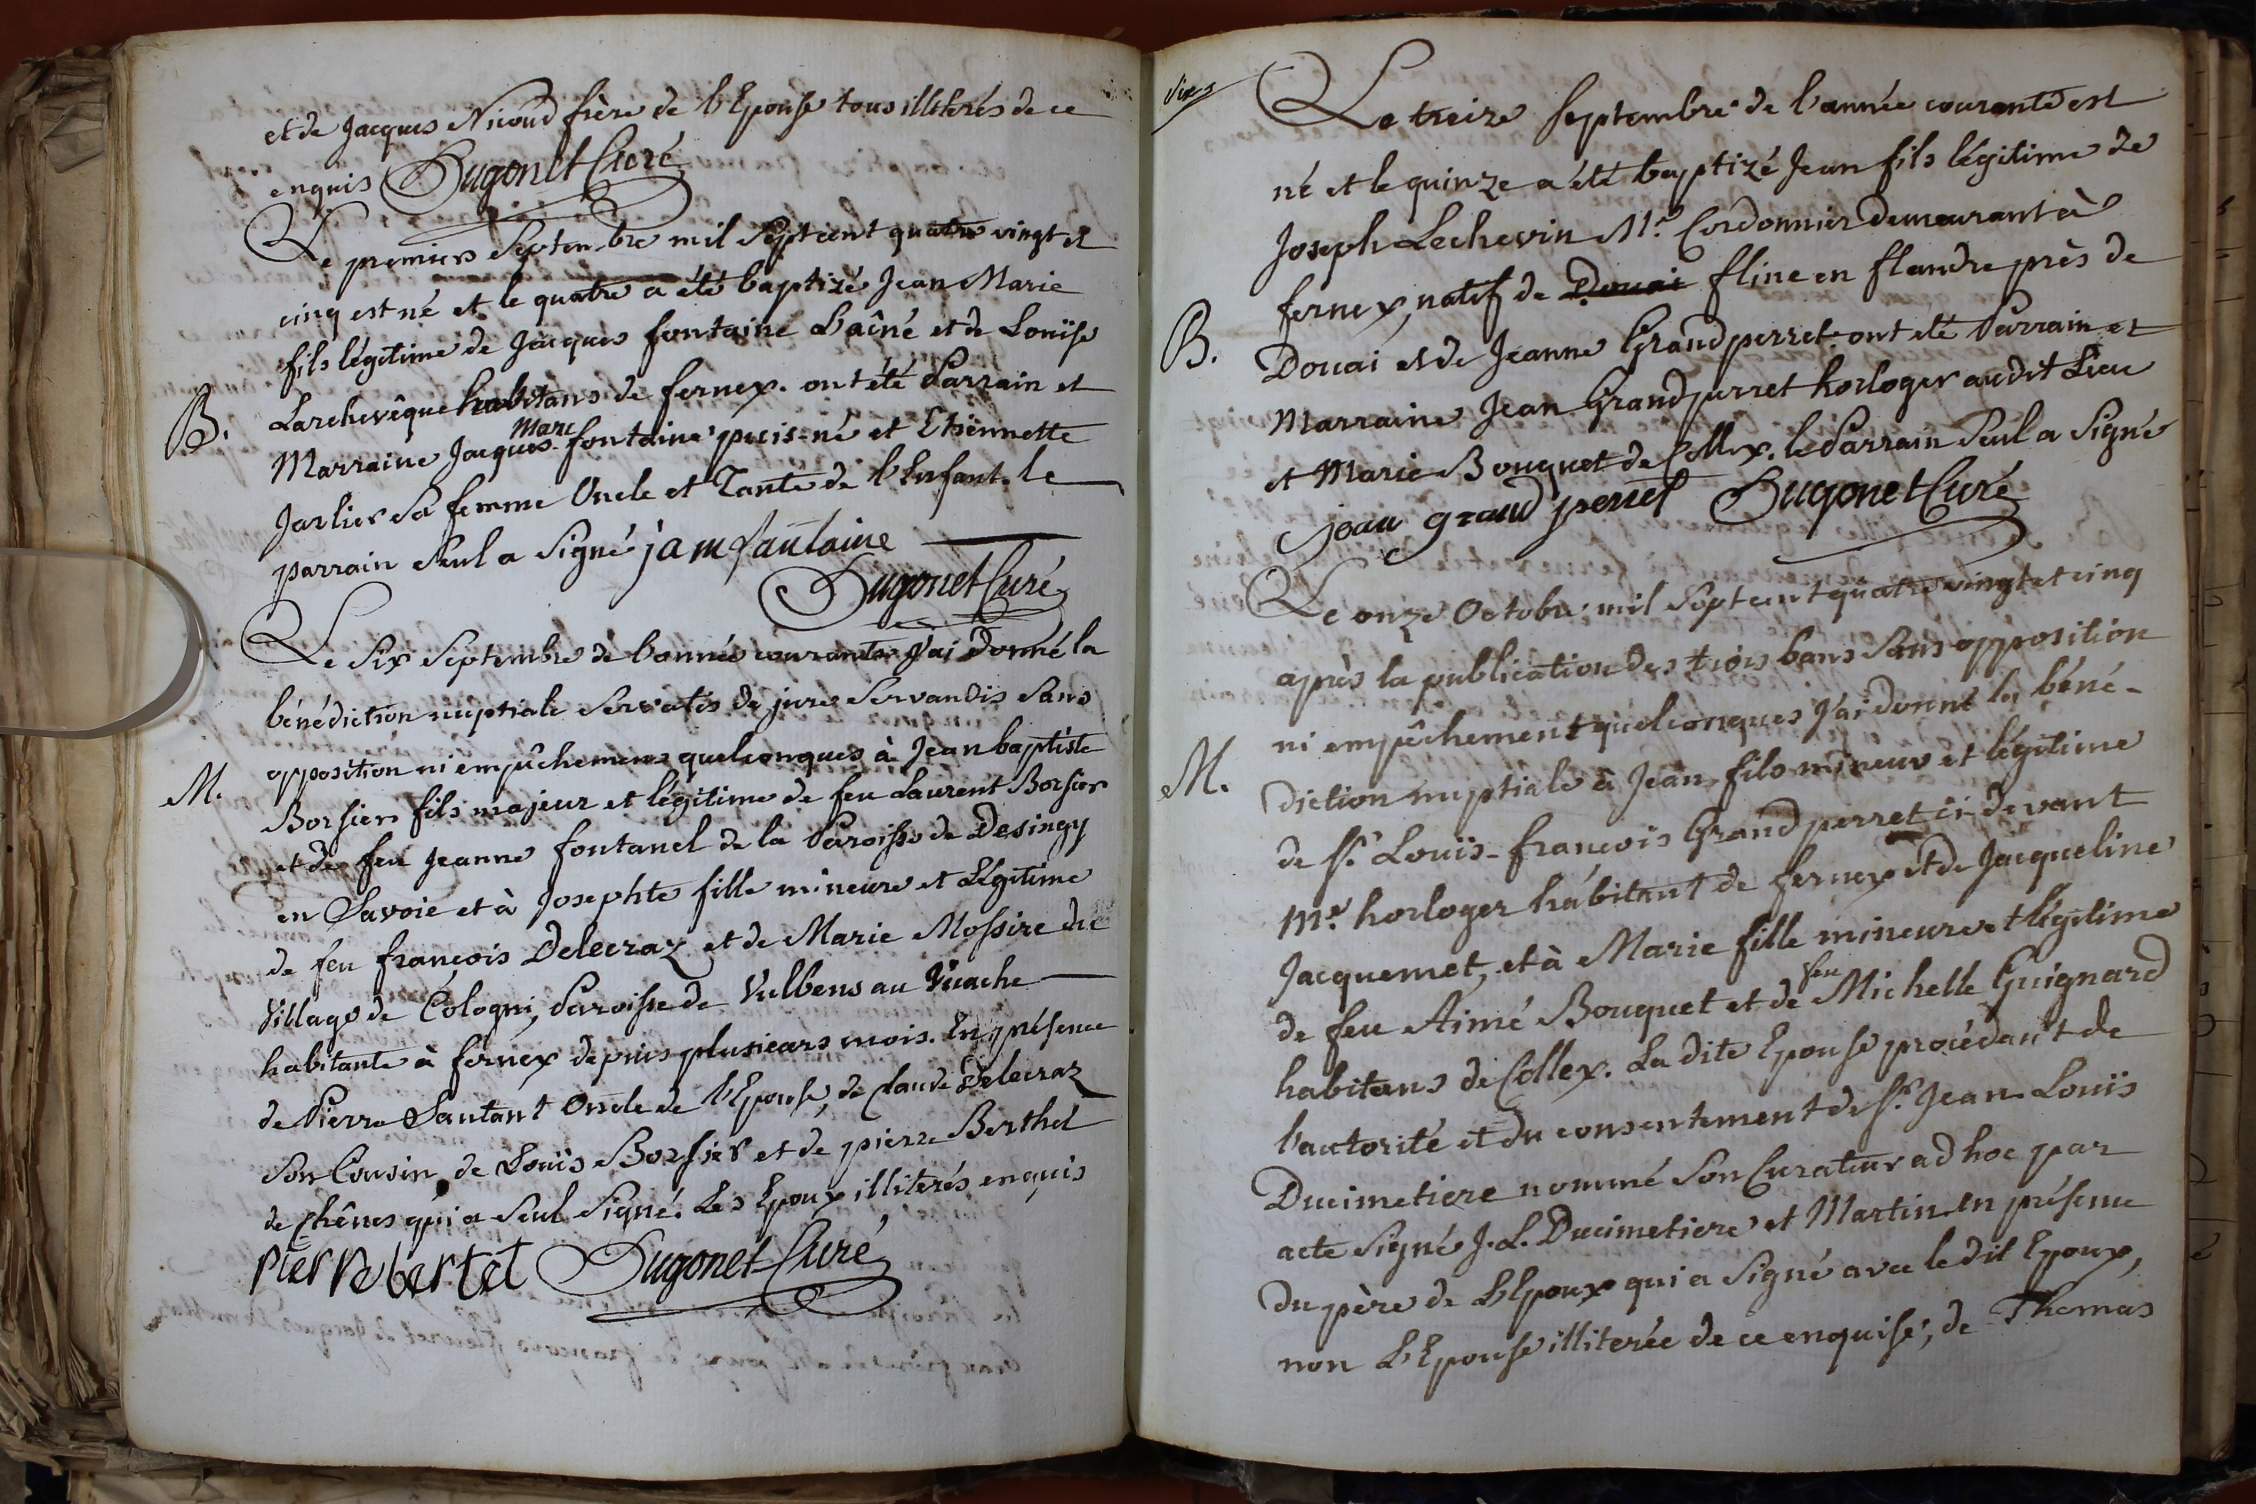 et de Jacques Nicoud frère de l'Epouse tous illiterés de ce
enquis Dugonet Curé
Le premier Septembre mil Sept cent quatre vingt et
cinq est né et le quatre a été baptizé Jean Marie
fils légitime de Jacques fontaine L'aîné et de Louïse
B. Larchevêque habitans de fernex. ont été Parrain et
Marc
Marraine Jacques fontaine puis-né et Etiennette
Jarlier Sa femme Oncle et Tante de l'Enfant. le
parrain Seul a Signé j a m fautaine
Dugonet Curé
Le Six Septembre de l'année courante J'ai donné la
bénédiction nuptiale Servatis de jure Servandis Sans
opposition ni empêchemens quelconques à Jean baptiste
M. Borsier fils majeur et légitime de feu Laurent Borsier
et de feu Jeanne fontanel de la Paroisse de Desingy
en Savoie et à Josephte fille mineure et Légitime
de feu françois Delecraz et de Marie Mossire du
Village de Cologni, Paroisse de Vulbens au Vuache
habitante à fernex depuis plusieurs mois. En présence
de Pierre Sautant Oncle de l'Epouse, de Claude Delecraz
Son Cousin, de Louïs Borsier et de pierre Berthet
de Chênes qui a Seul Signé. Les Epoux illiterés enquis
pierre bertet Dugonet Curé
Le treize Septembre de l'année courante est
né et le quinze a été baptizé Jean fils légitime de
Joseph Lechevin Me. Cordonnier demeurant à
fernex, natif de Douai fline en flandre près de
B. Douai et de Jeanne Grandperret. ont été Parrain et
Marraine Jean Grandperret horloger audit Lieu
et Marie Bouquet de Collex. le Parrain Seul a Signé
jean grand perret Dugonet Curé
Le onze Octobre mil Sept cent quatre vingt et cinq
après la publication des trois bans Sans opposition
ni empêchement quelconques J'ai donné la béné-
M. diction nuptiale à Jean fils mineur et légitime
de Sr. Louïs-françois Grand perret ci-devant
Me. horloger habitant de fernex et de Jacqueline
Jacquemet, et à Marie fille mineure et légitime
feu
de feu Aimé Bouquet et de Michelle Guignard
habitans de Collex. La dite Epouse procédant de
l'autorité et du consentement de Sr. Jean-Louïs
Ducimetiere nommé Son Curateur ad hoc par
acte Signé J. L. Ducimetiere et Martin. en présence
du père de L'Epoux qui a Signé avec le dit Epoux,
non L'Epouse illiterée de ce enquise, de Thomas